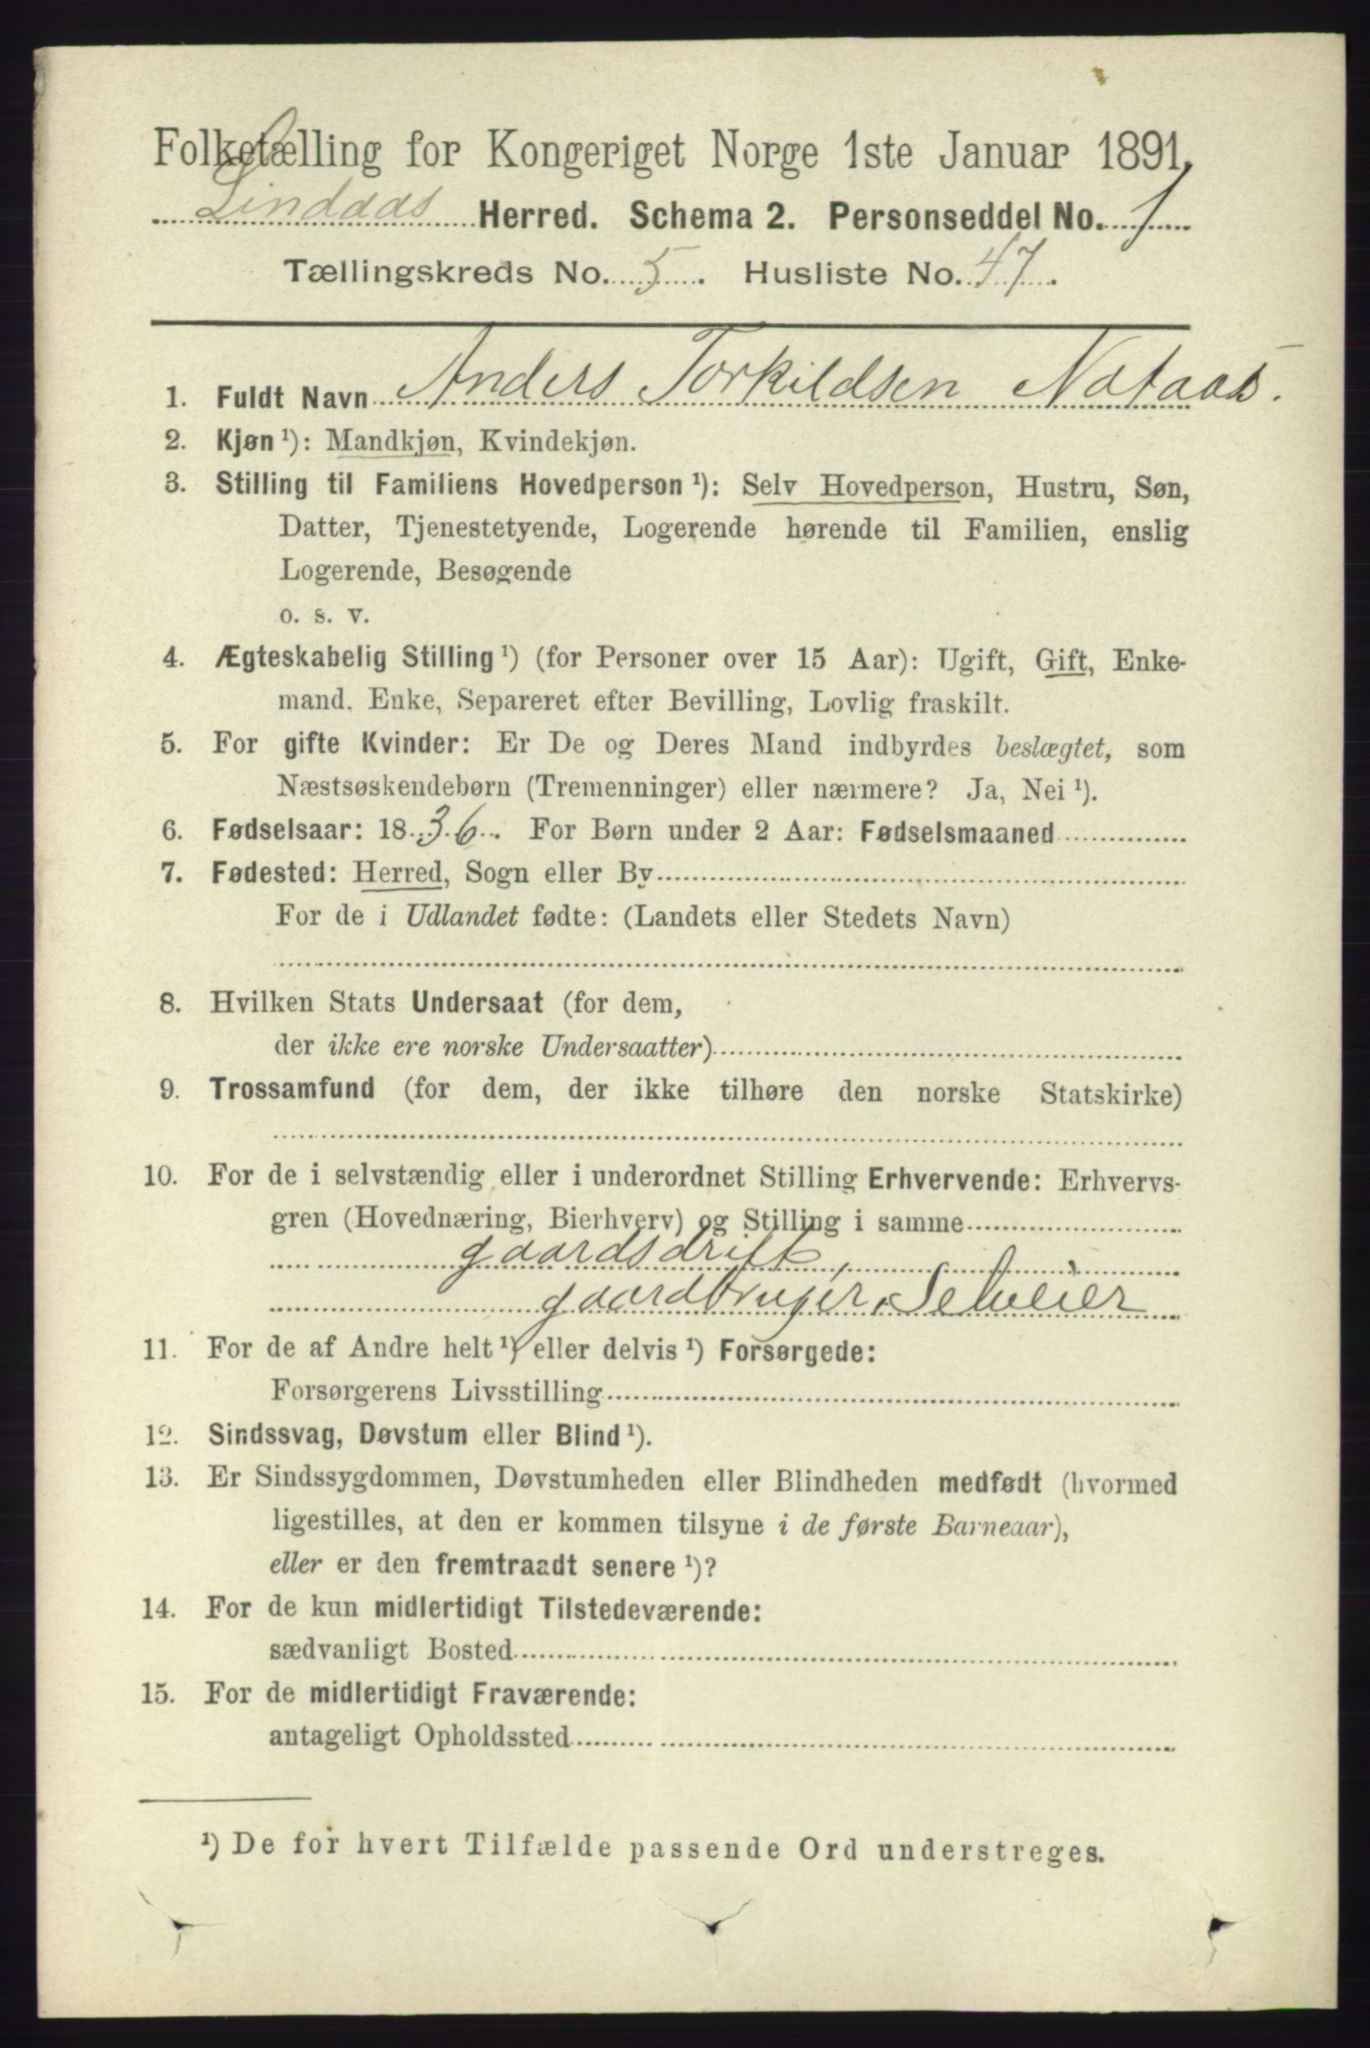 Folketælling for Kongeriget Norge 1ste Januar 1891.
Lindaas Herred. Schema 2. Personseddel No. 1
Tællingskreds No. 5. Husliste No. 47.
1. Fuldt Navn Anders Torkildsen Nataas.
2. Kjøn ¹): Mandkjøn, Kvindekjøn.
3. Stilling til Familiens Hovedperson ¹): Selv Hovedperson, Hustru, Søn,
Datter, Tjenestetyende, Logerende hørende til Familien, enslig
Logerende, Besøgende
o. s. v.
4. Ægteskabelig Stilling ¹) (for Personer over 15 Aar): Ugift, Gift, Enke-
mand, Enke, Separeret efter Bevilling, Lovlig fraskilt.
5. For gifte Kvinder: Er De og Deres Mand indbyrdes beslægtet, som
Næstsøskendebørn (Tremenninger) eller nærmere? Ja, Nei ¹).
6. Fødselsaar: 1836. For Børn under 2 Aar: Fødselsmaaned
7. Fødested: Herred, Sogn eller By
For de i Udlandet fødte: (Landets eller Stedets Navn)
8. Hvilken Stats Undersaat (for dem,
der ikke ere norske Undersaatter)
9. Trossamfund (for dem, der ikke tilhøre den norske Statskirke)
10. For de i selvstændig eller i underordnet Stilling Erhvervende: Erhvervs-
gren (Hovednæring, Bierhverv) og Stilling i samme
gaardsdrift,
gaardbruger, Selveier
11. For de af Andre helt ¹) eller delvis ¹) Forsørgede:
Forsørgerens Livsstilling
12. Sindssvag, Døvstum eller Blind ¹).
13. Er Sindssygdommen, Døvstumheden eller Blindheden medfødt (hvormed
ligestilles, at den er kommen tilsyne i de første Barneaar),
eller er den fremtraadt senere ¹)?
14. For de kun midlertidigt Tilstedeværende:
sædvanligt Bosted
15. For de midlertidigt Fraværende:
antageligt Opholdssted
¹) De for hvert Tilfælde passende Ord understreges.